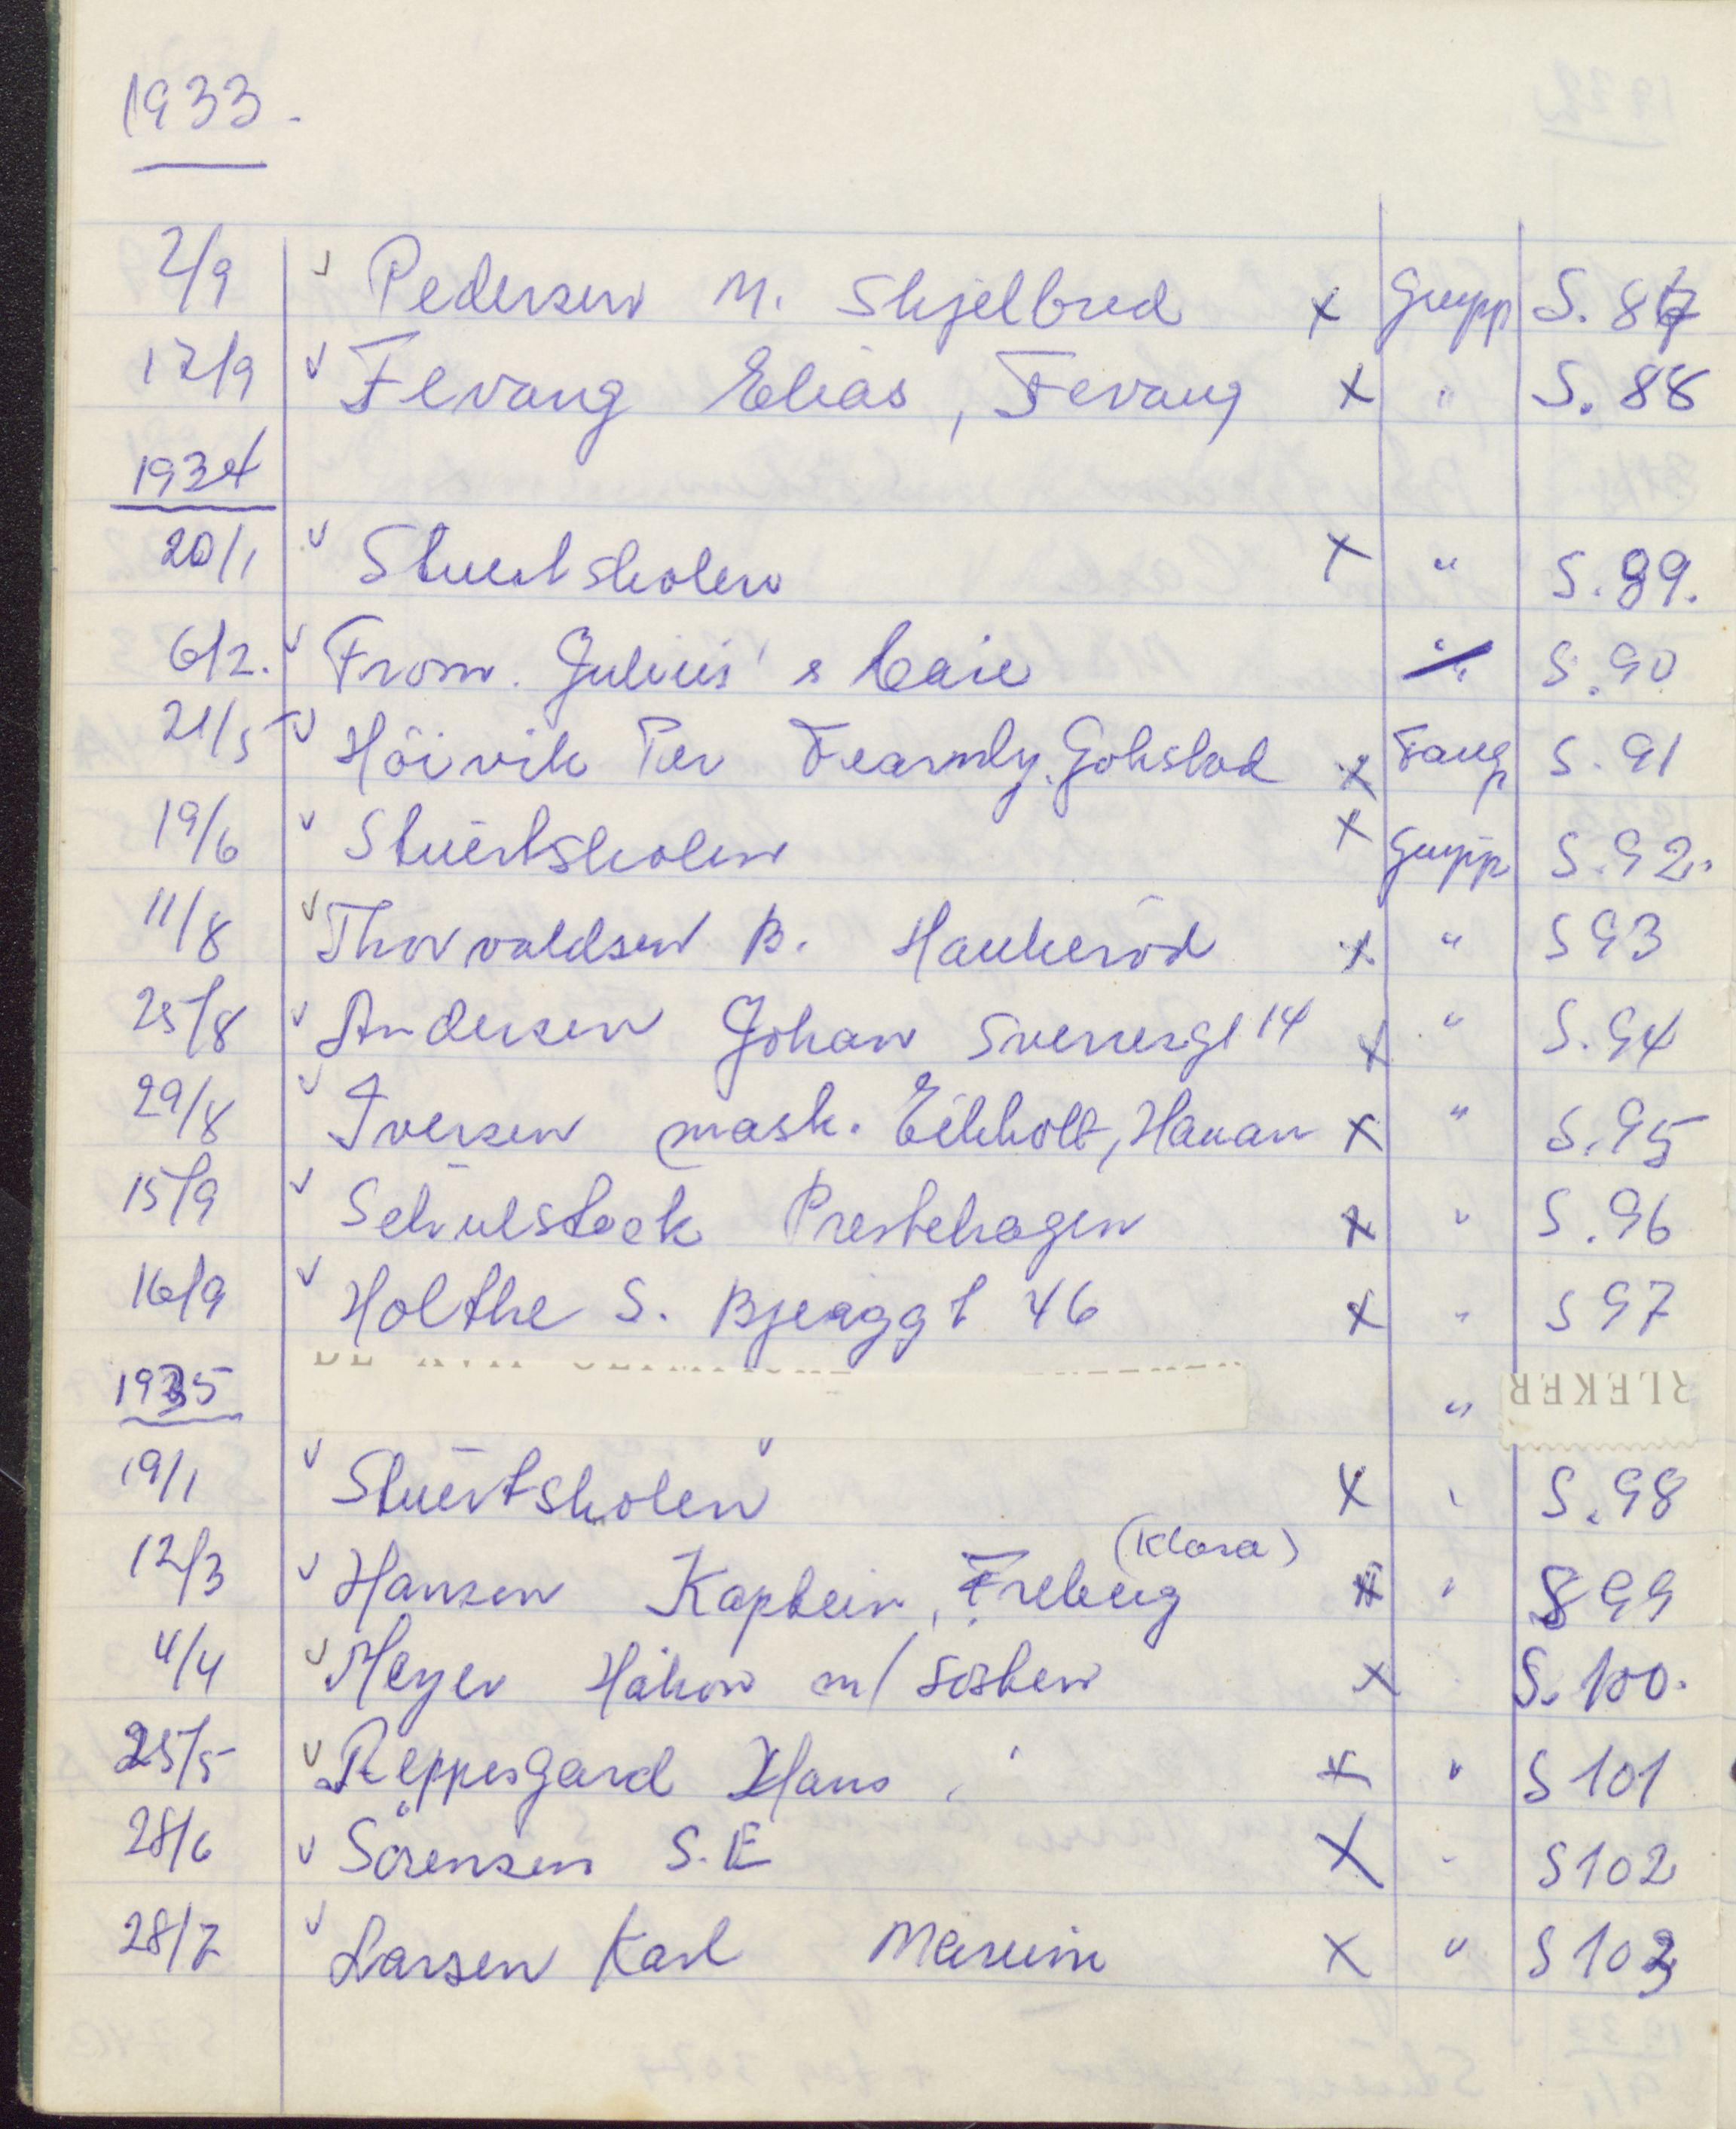 1933.
2/9 Pedersen M. Skjelbred x Grupp S. 87
17/9 Fevang Elias, Fevang x " S. 88
1934
20/1 Stuertskolen x " S. 89.
6/2. From. Julius & Caie " S. 90
21/5 Höivik Per Fearnly. Gokstad x Fang S. 91
19/6 Stuertskolen x Grupp S. 92.
11/8 Thorvaldsen B. Haukeröd x " S 93
25/8 Andersen Johan Sverresgt 14 x " S. 94
29/8 Iversen mask. Eikholt, Hauan x " S. 95
15/9 Schulstock Prestehagen x " S. 96
16/9 Holthe S. Bjeraggt 46 x " S 97
1935 " RLEKER
19/1 Stuertskolen x " S. 98
(Klara)
12/3 Hansen Kaptein, Freberg x " S 99
4/4 Meyer Håkon m/ søsken x S. 100.
25/5 Reppesgard Hans x " S 101
28/6 Sörensen S. E x " S 102
28/7 Larsen Karl x " S 103